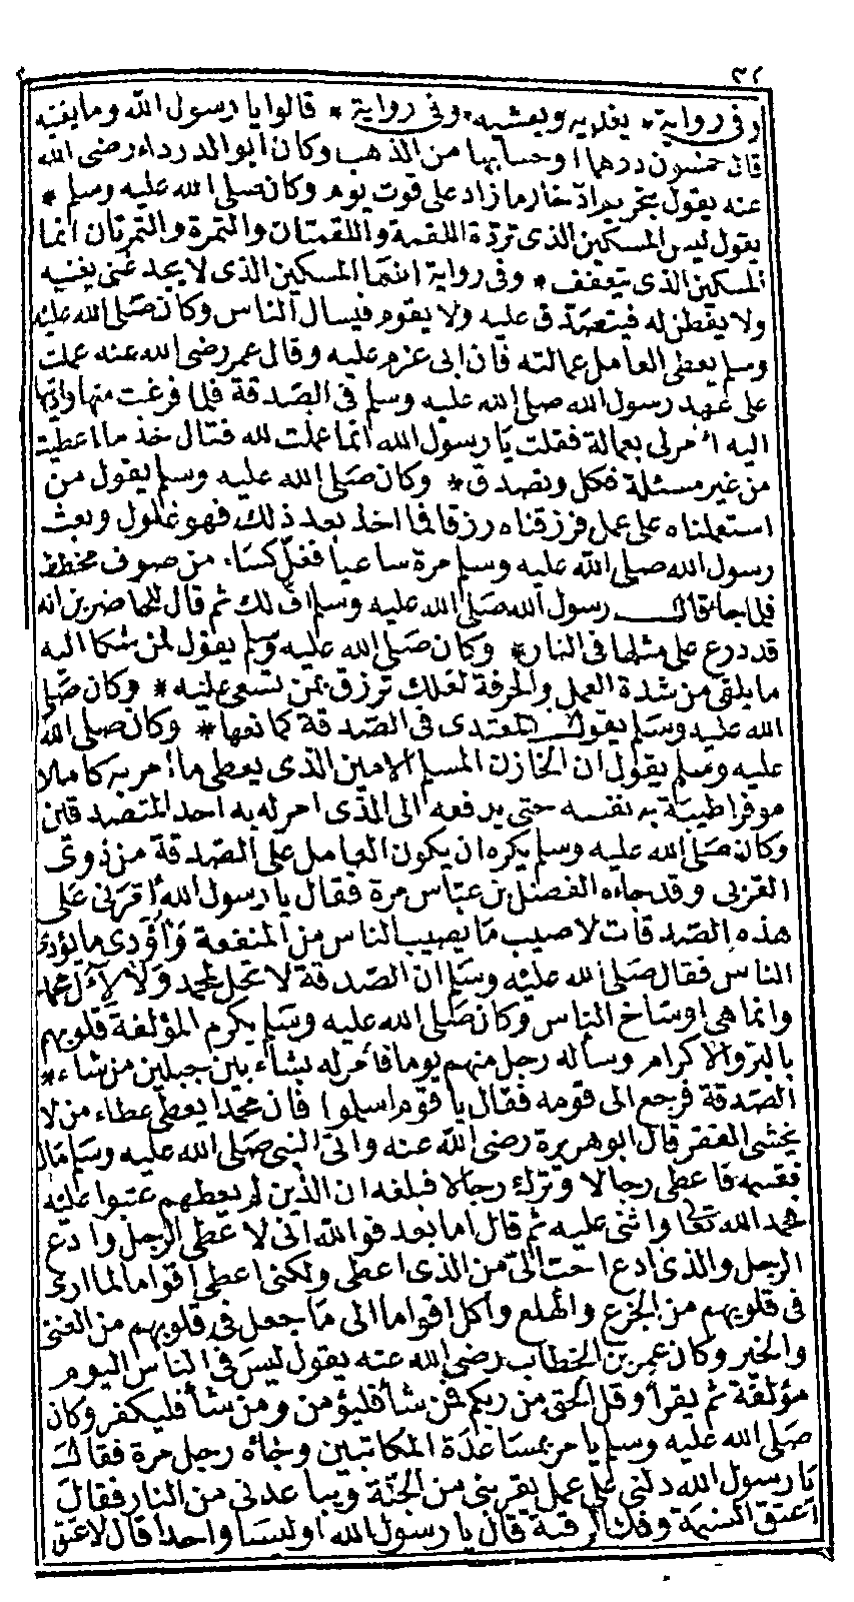 ٣٢
وفى رواية * يغديه ويعشيه * وفى رواية * قالوا يا رسول الله وما يغنيه
قال خمسون درهما او حسابها من الذهب وكان ابو الدرداء رضى الله
عنه يقول يحرم ادخار ما زاد على قوت يوم وكان صلى الله عليه وسلم *
يقول ليس المسكين الذى ترده اللقمة واللقمتان والتمرة والتمرتان انما
المسكين الذى يتعفف * وفى رواية انما المسكين الذى لا يجد غنى يغنيه
ولا يفطن له فيتصدق عليه ولا يقوم فيسال الناس وكان صلى الله عليه
وسلم يعطى العامل عمالته فان ابى عزم عليه وقال عمر رضى الله عنه عملت
على عهد رسول الله صلى الله عليه وسلم فى الصدقة فلما فرغت منها واديتها
اليه امر لى بعمالة فقلت يا رسول الله انما عملت لله فقال خذ ما اعطيت
من غير مسئلة فكل وتصدق * وكان صلى الله عليه وسلم يقول من
استعملناه على عمل فرزقناه رزقا فما اخذ بعد ذلك فهو غلول وبعث
رسول الله صلى الله عليه وسلم مرة ساعيا فغل كساء من صوف مخطط
فلما جاء قال رسول الله صلى الله عليه وسلم اف لك ثم قال للحاضرين انه
قد درع على مثلها فى النار * وكان صلى الله عليه وسلم يقول لمن شكا اليه
ما يلقى من شدة العمل والحرفة لعلك ترزق بمن تسعى عليه * وكان صلى
الله عليه وسلم يقول المعتدى فى الصدقة كمانعها * وكان صلى الله
عليه وسلم يقول ان الخازن المسلم الامين الذى يعطى ما امر به كاملا
موفرا طيبة به نفسه حتى يدفعه الى الذى امر له به احد المتصدقين
وكان صلى الله عليه وسلم يكره ان يكون العامل على الصدقة من ذوى
القربى وقد جاءه الفضل بن عباس مرة فقال يا رسول الله أمرنى على
هذه الصدقات لاصيب ما يصيب الناس من المنفعة وأؤدى ما يؤدى
الناس فقال صلى الله عليه وسلم ان الصدقة لا تحل لمحمد ولا لآل محمد
وانما هى اوساخ الناس وكان صلى الله عليه وسلم يكرم المؤلفة قلوبهم
بالبر والاكرام وسأله رجل منهم يوما فأمر له بشاء بين جبلين من شاء *
الصدقة فرجع الى قومه فقال يا قوم اسلموا فان محمدا يعطى عطاء من لا
يخشى الفقر قال ابو هريرة رضى الله عنه واتى النبى صلى الله عليه وسلم مال
فقسمه فاعطى رجالا وترك رجالا فبلغه ان الذين لم يعطهم عتبوا عليه
فحمد الله تعالى واثنى عليه ثم قال اما بعد فوالله انى لا عطى الرجل وادع
الرجل والذى ادع احب الى من الذى اعطى ولكنى اعطى اقواما لما ارى
فى قلوبهم من الجزع والهلع وأكل اقواما الى ما جعل فى قلوبهم من الغنى
والخير وكان عمر بن الخطاب رضى الله عنه يقول ليس فى الناس اليوم
مؤلفة ثم يقرأ وقل الحق من ربكم فمن شاء فليؤمن ومن شاء فليكفر وكان
صلى الله عليه وسلم يامر بمساعدة المكاتبين وجاءه رجل مرة فقال
يا رسول الله دلنى على عمل يقربنى من الجنة ويباعدنى من النار فقال
اعتق النسمة وفك الرقبة قال يا رسول الله اوليسا واحدا قال لا عتق